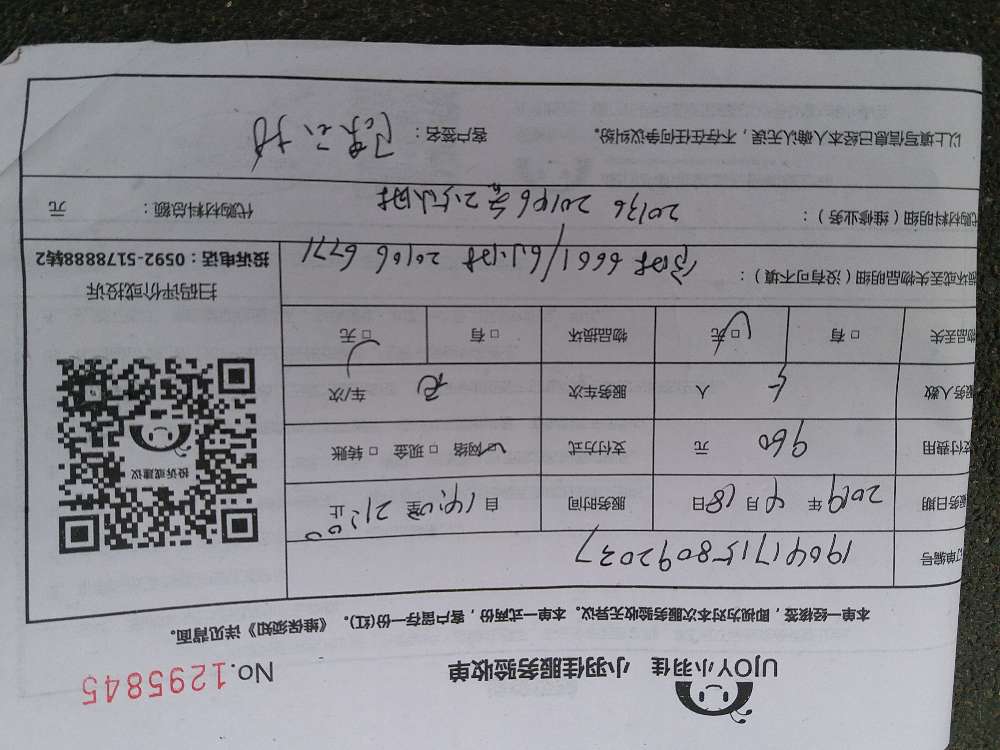 UJOY小羽佳 小羽佳服务验收单 No.1295845
本单一经核签，即视为对本次服务验收无异议。本单一式两份，客户留存一份(红)。《维保须知》详见背面。
订单编号 190417158092037
服务日期 2019 年 4 月 18 日 服务时间 自 14:00 至 21:00 止
支付费用 960 元 支付方式 ☑网络 □现金 □转账
服务人数 人 服务车次 车/次
物品丢失 □有 □无 物品损坏 □有 □无
损坏或丢失物品明细（没有可不填）： 6661/ 20106 6771
代购材料明细（维修业务）： 20136 20106 代购材料总额： 元
以上填写信息已经本人确认无误，不存在任何争议纠纷。 客户签名：
投诉或建议
扫码评价或投诉
投诉电话：0592-5178888转2